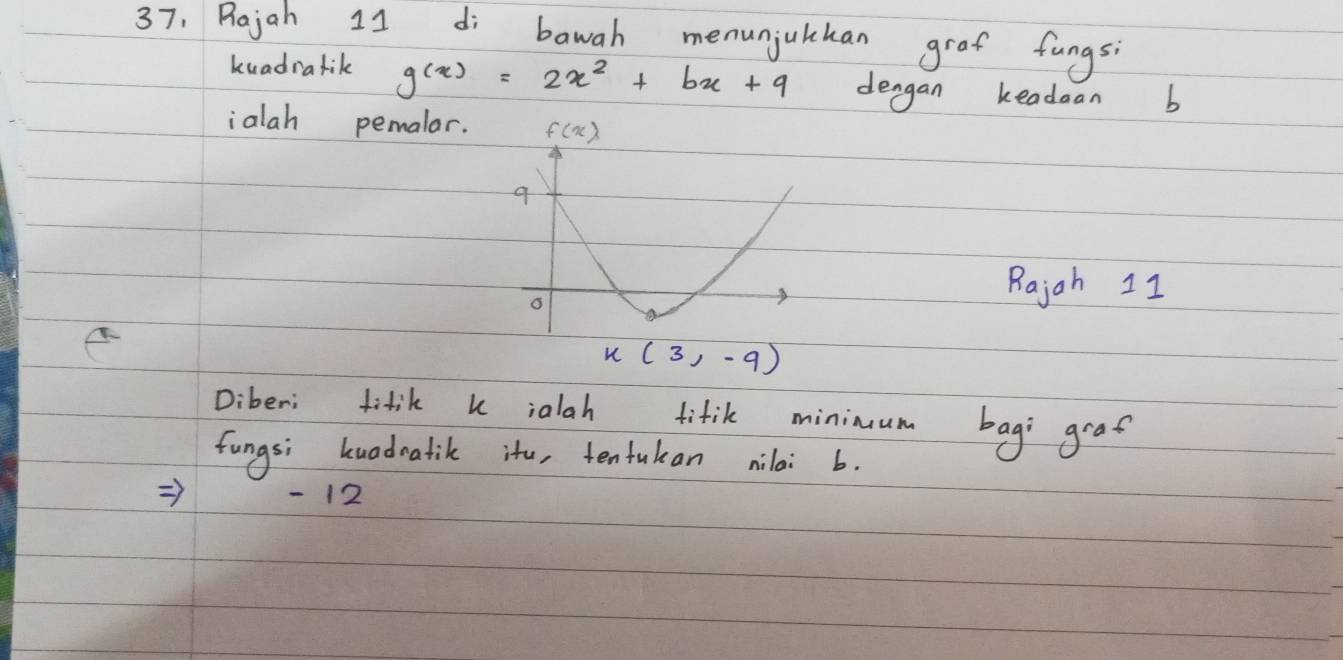 37. Rajah 11 di bawah menunjukkan graf fungsi
kuadratik g(x) = 2x² + bx + 9 dengan keadaan b
ialah pemalar.
f(x)
9
0
Rajah 11
K (3, -9)
Diberi titik K ialah titik minimum bagi graf
fungsi kuadratik itu, tentukan nilai b.
⇒ -12